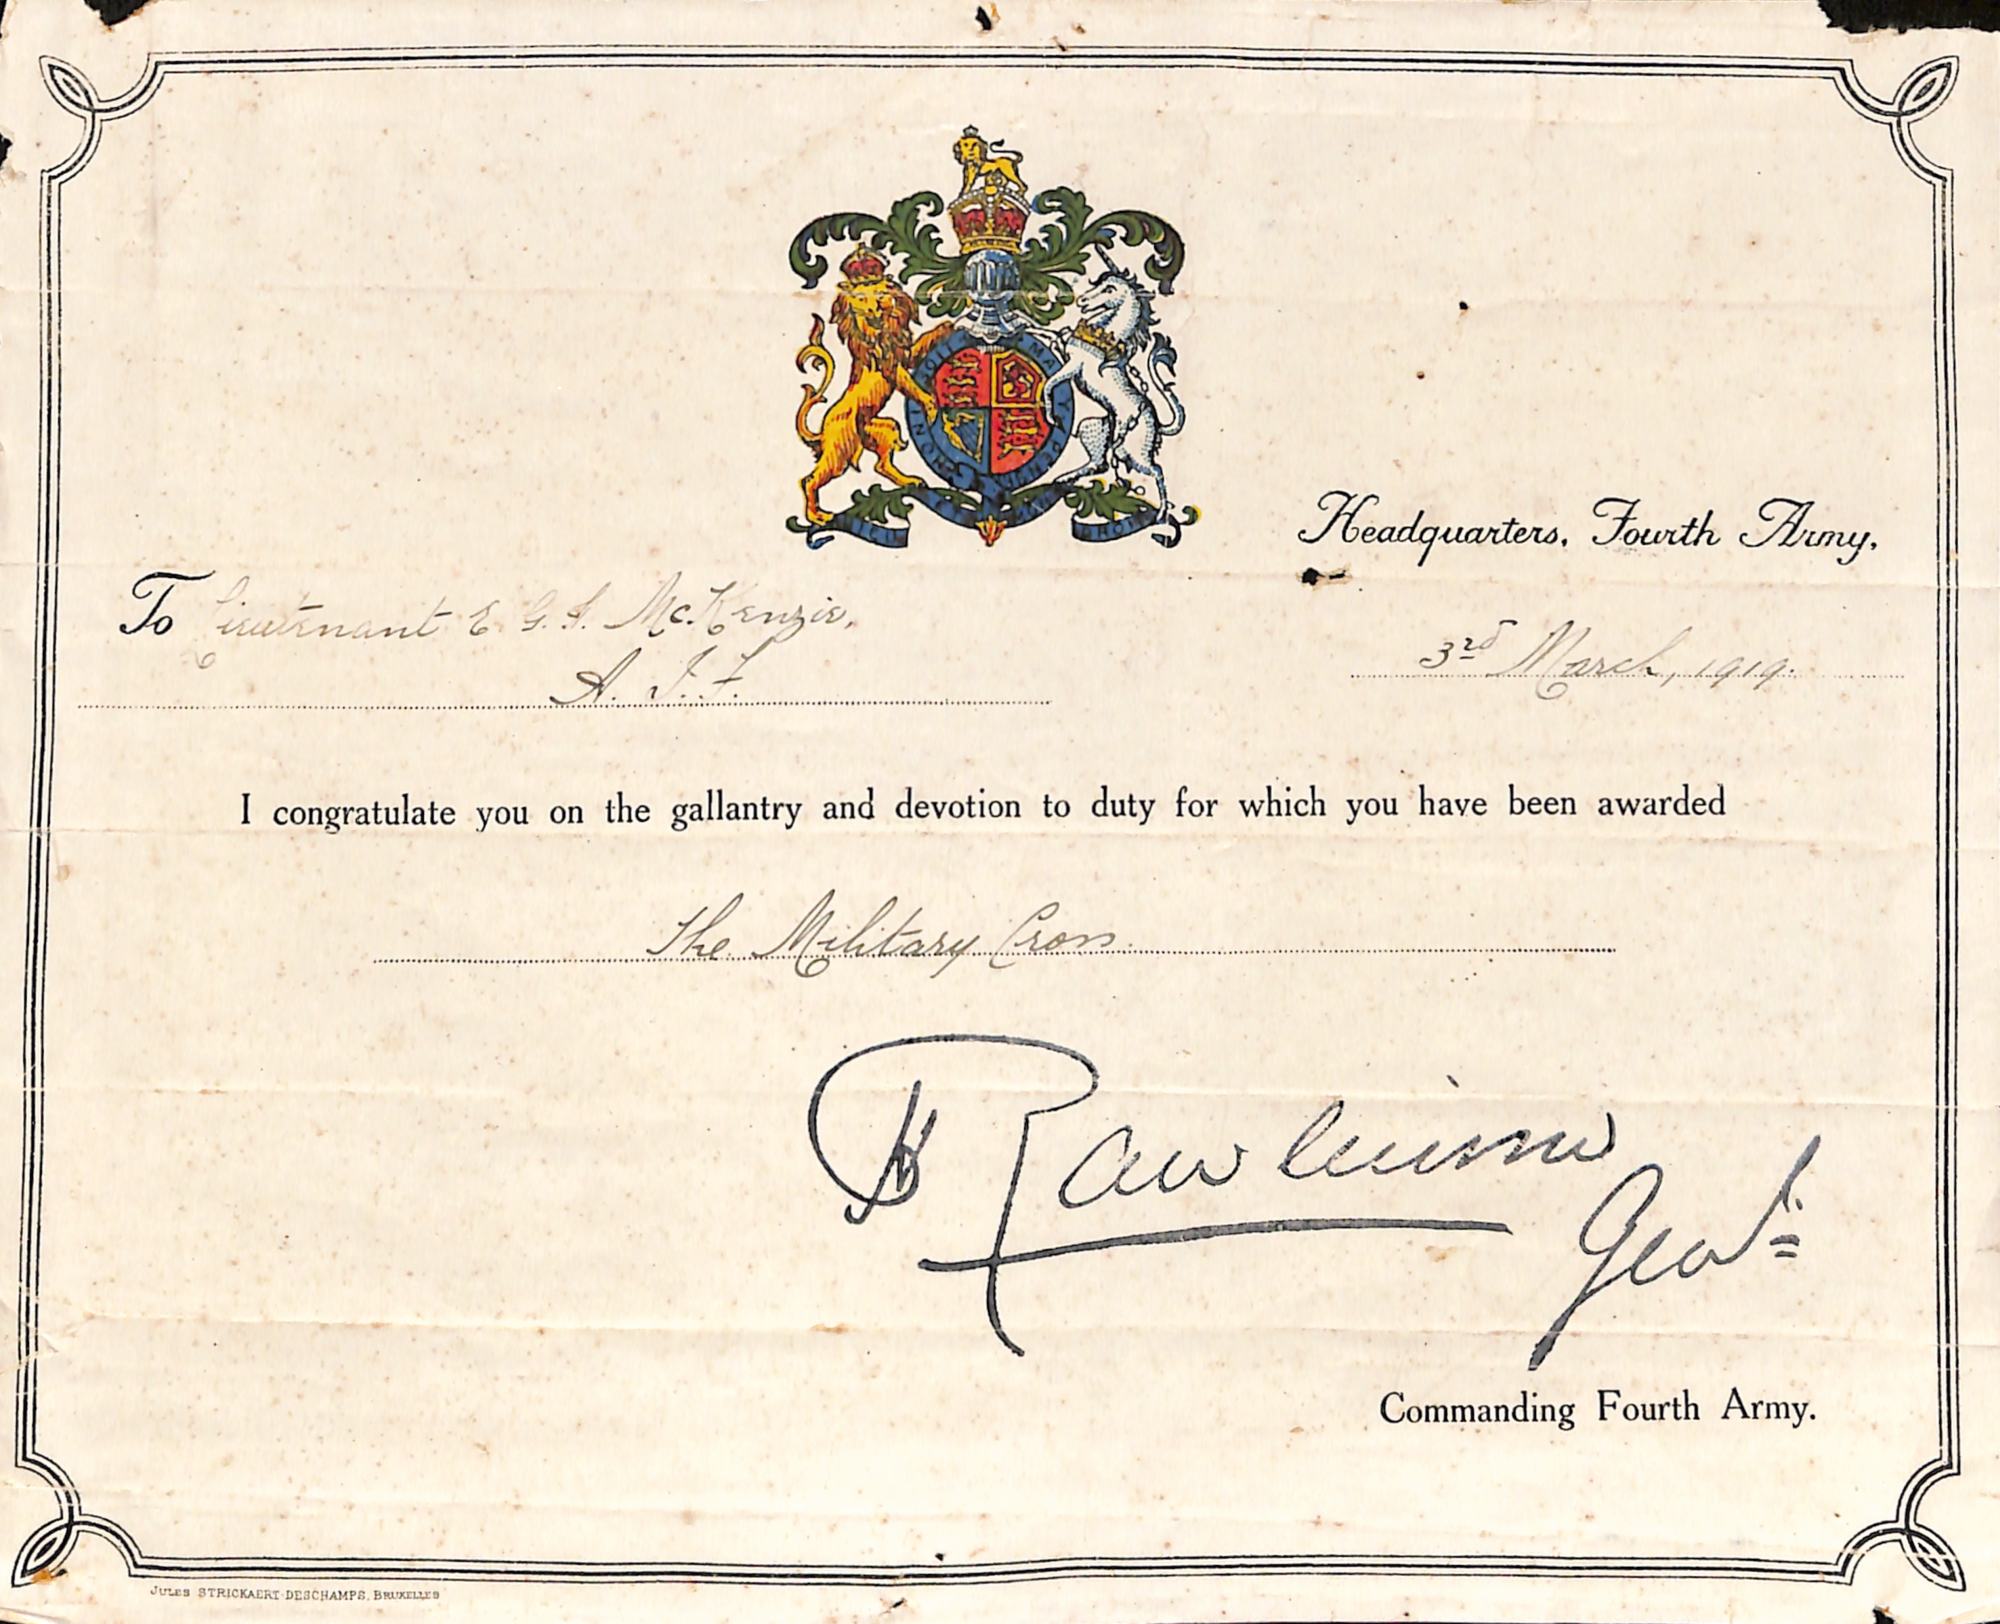 Headquarters, Fourth Army,
To Lieutenant E. G. F. McKenzie,
A. I. F.
3rd March, 1919.
I congratulate you on the gallantry and devotion to duty for which you have been awarded
The Military Cross.
H Rawlinson
Genl.
Commanding Fourth Army.
JULES STRICKAERT-DESCHAMPS, BRUXELLES